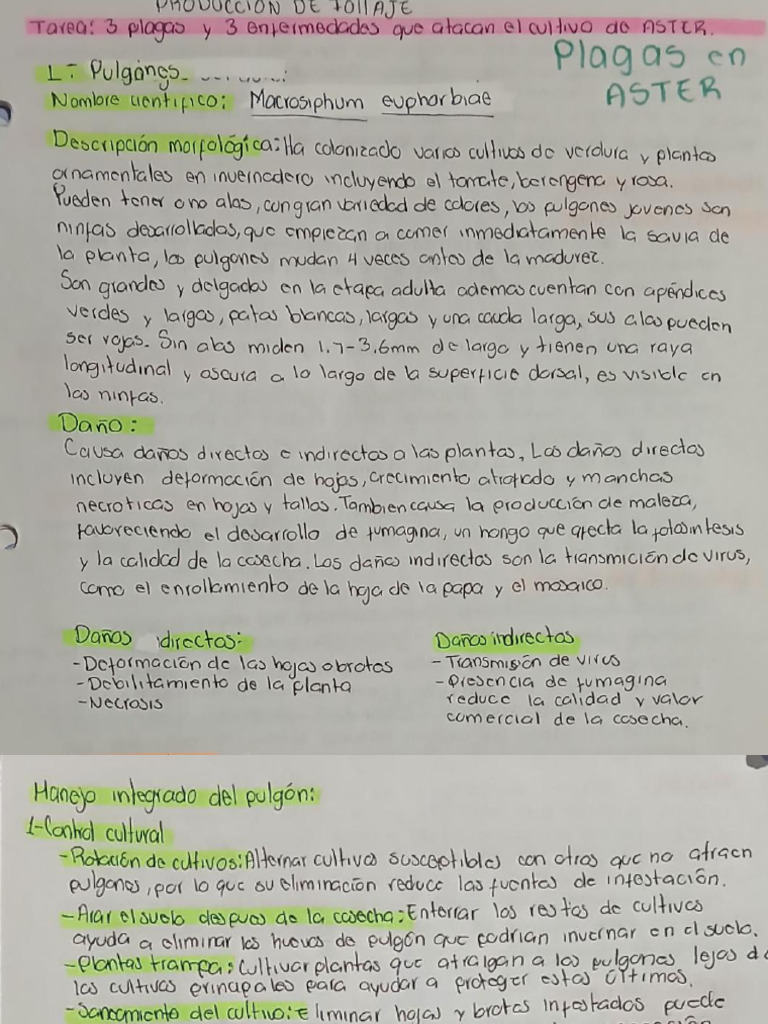 PRODUCCION DE FOLLAJE
Tarea: 3 plagas y 3 enfermedades que atacan el cultivo de ASTER.
Plagas en
ASTER
1.- Pulgones
Nombre cientifico: Macrosiphum euphorbiae
Descripción morfológica: Ha colonizado varios cultivos de verdura y plantas
ornamentales en invernadero incluyendo el tomate, berengena y rosa.
Pueden tener o no alas, con gran variedad de colores, los pulgones jovenes son
ninfas desarrolladas, que empiezan a comer inmediatamente la savia de
la planta, los pulgones mudan 4 veces antes de la madurez.
Son grandes y delgados en la etapa adulta ademas cuentan con apéndices
verdes y largos, patas blancas, largas y una cauda larga, sus alas pueden
ser rojas. Sin alas miden 1.7-3.6mm de largo y tienen una raya
longitudinal y oscura a lo largo de la superficie dorsal, es visible en
las ninfas.
Daño:
Causa daños directos e indirectos a las plantas, Los daños directos
incluyen deformación de hojas, crecimiento atrofiado y manchas
necroticas en hojas y tallos. Tambien causa la producción de maleza,
favoreciendo el desarrollo de fumagina, un hongo que afecta la fotosintesis
y la calidad de la cosecha. Los daños indirectos son la transmición de virus,
como el enrollamiento de la hoja de la papa y el mosaico.
Daños directos:
-Deformación de las hojas o brotes
-Debilitamiento de la planta
-Necrosis
Daños indirectos
- Transmisión de virus
-Presencia de fumagina
reduce la calidad y valor
comercial de la cosecha.
Manejo integrado del pulgón:
1-Control cultural
-Rotación de cultivos: Alternar cultivos susceptibles con otros que no atraen
pulgones, por lo que su eliminación reduce las fuentes de infestación.
-Arar el suelo despues de la cosecha: Enterrar los restos de cultivos
ayuda a eliminar los huevos de pulgón que podrian invernar en el suelo.
-Plantas trampa: Cultivar plantas que atraigan a los pulgones lejos de
los cultivos principales para ayudar a proteger estos últimos.
-Saneamiento del cultivo: Eliminar hojas y brotes infestados puede